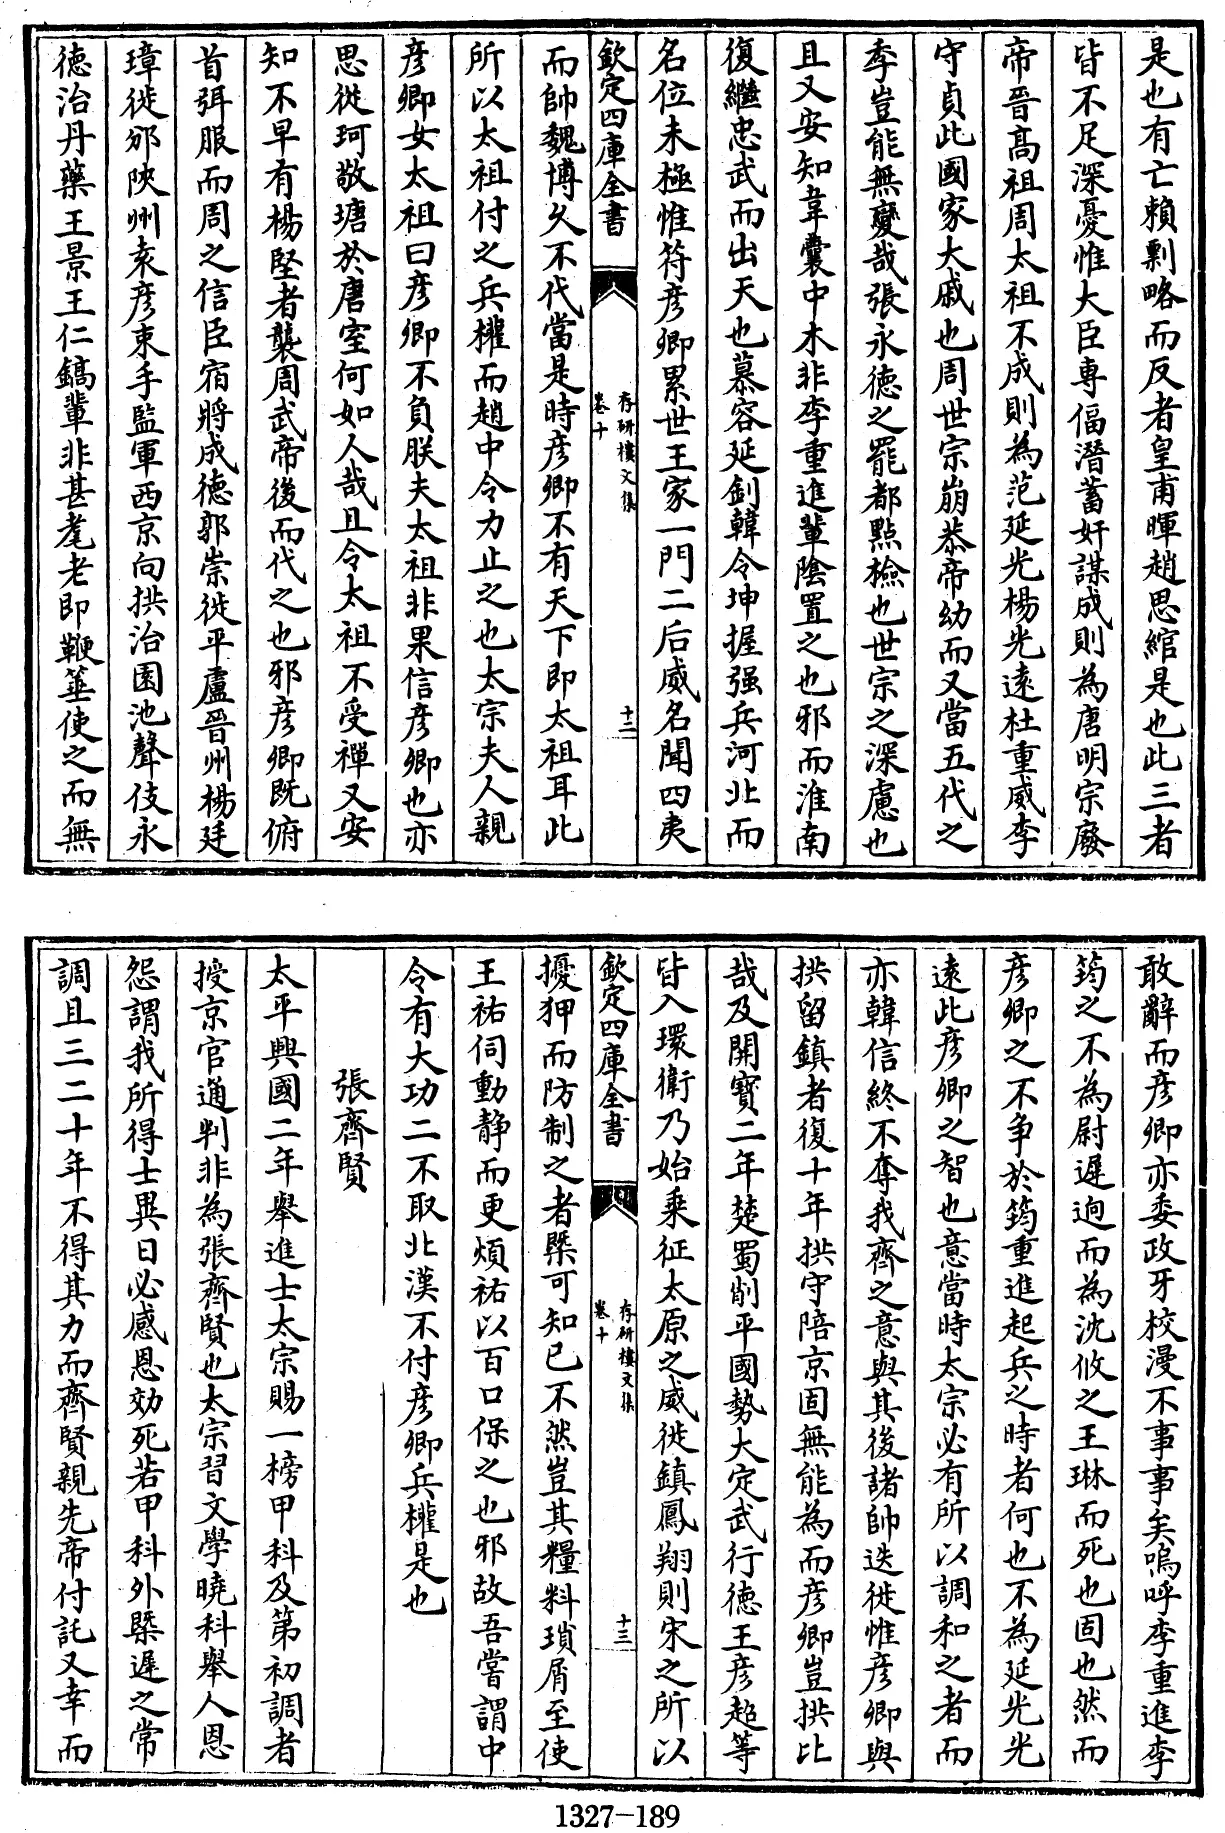 是也有亡賴剽略而反者皇甫暉趙思綰是也此三者
皆不足深憂惟大臣專偪潛蓄奸謀成則為唐明宗廢
帝晉高祖周太祖不成則為范延光楊光遠杜重威李
守貞此國家大戚也周世宗崩恭帝幼而又當五代之
季豈能無變哉張永德之罷都點檢也世宗之深慮也
且又安知韋囊中木非李重進輩陰置之也邪而淮南
復繼忠武而出天也慕容延釗韓令坤握强兵河北而
名位未極惟符彦卿累世王家一門二后威名聞四夷
欽定四庫全書
存研樓文集
卷十
十二
而帥魏博久不代當是時彦卿不有天下即太祖耳此
所以太祖付之兵權而趙中令力止之也太宗夫人親
彦卿女太祖曰彦卿不負朕夫太祖非果信彦卿也亦
思從珂敬瑭於唐室何如人哉且令太祖不受禪又安
知不早有楊堅者襲周武帝後而代之也邪彦卿既俯
首弭服而周之信臣宿將成德郭崇徙平盧晉州楊廷
璋徙邠陜州袁彦束手監軍西京向拱治園池聲伎永
徳治丹藥王景王仁鎬輩非甚耄老即鞭箠使之而無
敢辭而彦卿亦委政牙校漫不事事矣嗚呼李重進李
筠之不為尉遲迥而為沈攸之王琳而死也固也然而
彦卿之不争於筠重進起兵之時者何也不為延光光
遠此彦卿之智也意當時太宗必有所以調和之者而
亦韓信終不奪我齊之意與其後諸帥迭徙惟彦卿與
拱留鎮者復十年拱守陪京固無能為而彦卿豈拱比
哉及開寳二年楚蜀削平國勢大定武行德王彦超等
皆入環衛乃始乗征太原之威徙鎮鳳翔則宋之所以
欽定四庫全書
存研樓文集
卷十
十三
擾狎而防制之者槩可知已不然豈其糧料瑣屑至使
王祐伺動静而更煩祐以百口保之也邪故吾嘗謂中
令有大功二不取北漢不付彦卿兵權是也
張齊賢
太平興國二年舉進士太宗賜一榜甲科及第初調者
授京官通判非為張齊賢也太宗習文學曉科舉人恩
怨謂我所得士異日必感恩効死若甲科外槩遲之常
調且三二十年不得其力而齊賢親先帝付託又幸而
1327-189